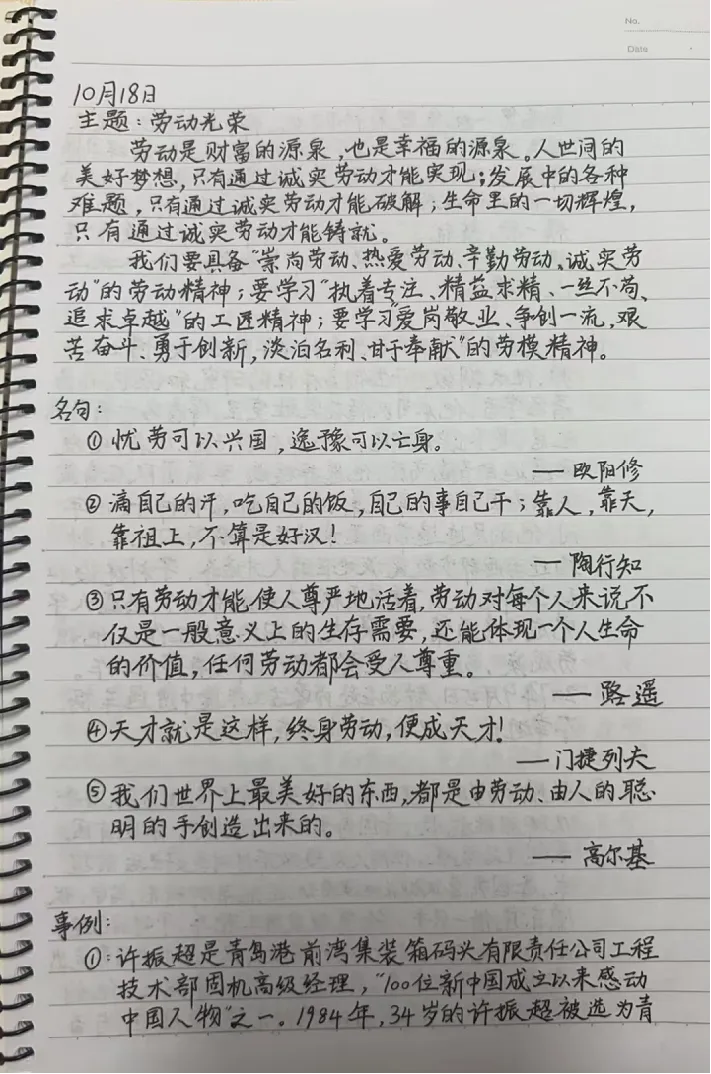 No.
Date
10月18日
主题:劳动光荣
劳动是财富的源泉,也是幸福的源泉。人世间的
美好梦想,只有通过诚实劳动才能实现;发展中的各种
难题,只有通过诚实劳动才能破解;生命里的一切辉煌,
只有通过诚实劳动才能铸就。
我们要具备"崇尚劳动、热爱劳动、辛勤劳动、诚实劳
动"的劳动精神;要学习"执着专注、精益求精、一丝不苟、
追求卓越"的工匠精神;要学习"爱岗敬业、争创一流,艰
苦奋斗、勇于创新,淡泊名利、甘于奉献"的劳模精神。
名句:
①忧劳可以兴国,逸豫可以亡身。
——欧阳修
②滴自己的汗,吃自己的饭,自己的事自己干;靠人,靠天,
靠祖上,不算是好汉!
——陶行知
③只有劳动才能使人尊严地活着,劳动对每个人来说不
仅是一般意义上的生存需要,还能体现一个人生命
的价值,任何劳动都会受人尊重。
——路遥
④天才就是这样,终身劳动,便成天才!
——门捷列夫
⑤我们世界上最美好的东西,都是由劳动、由人的聪
明的手创造出来的。
——高尔基
事例:
①:许振超是青岛港前湾集装箱码头有限责任公司工程
技术部固机高级经理,"100位新中国成立以来感动
中国人物"之一。1984年,34岁的许振超被选为青